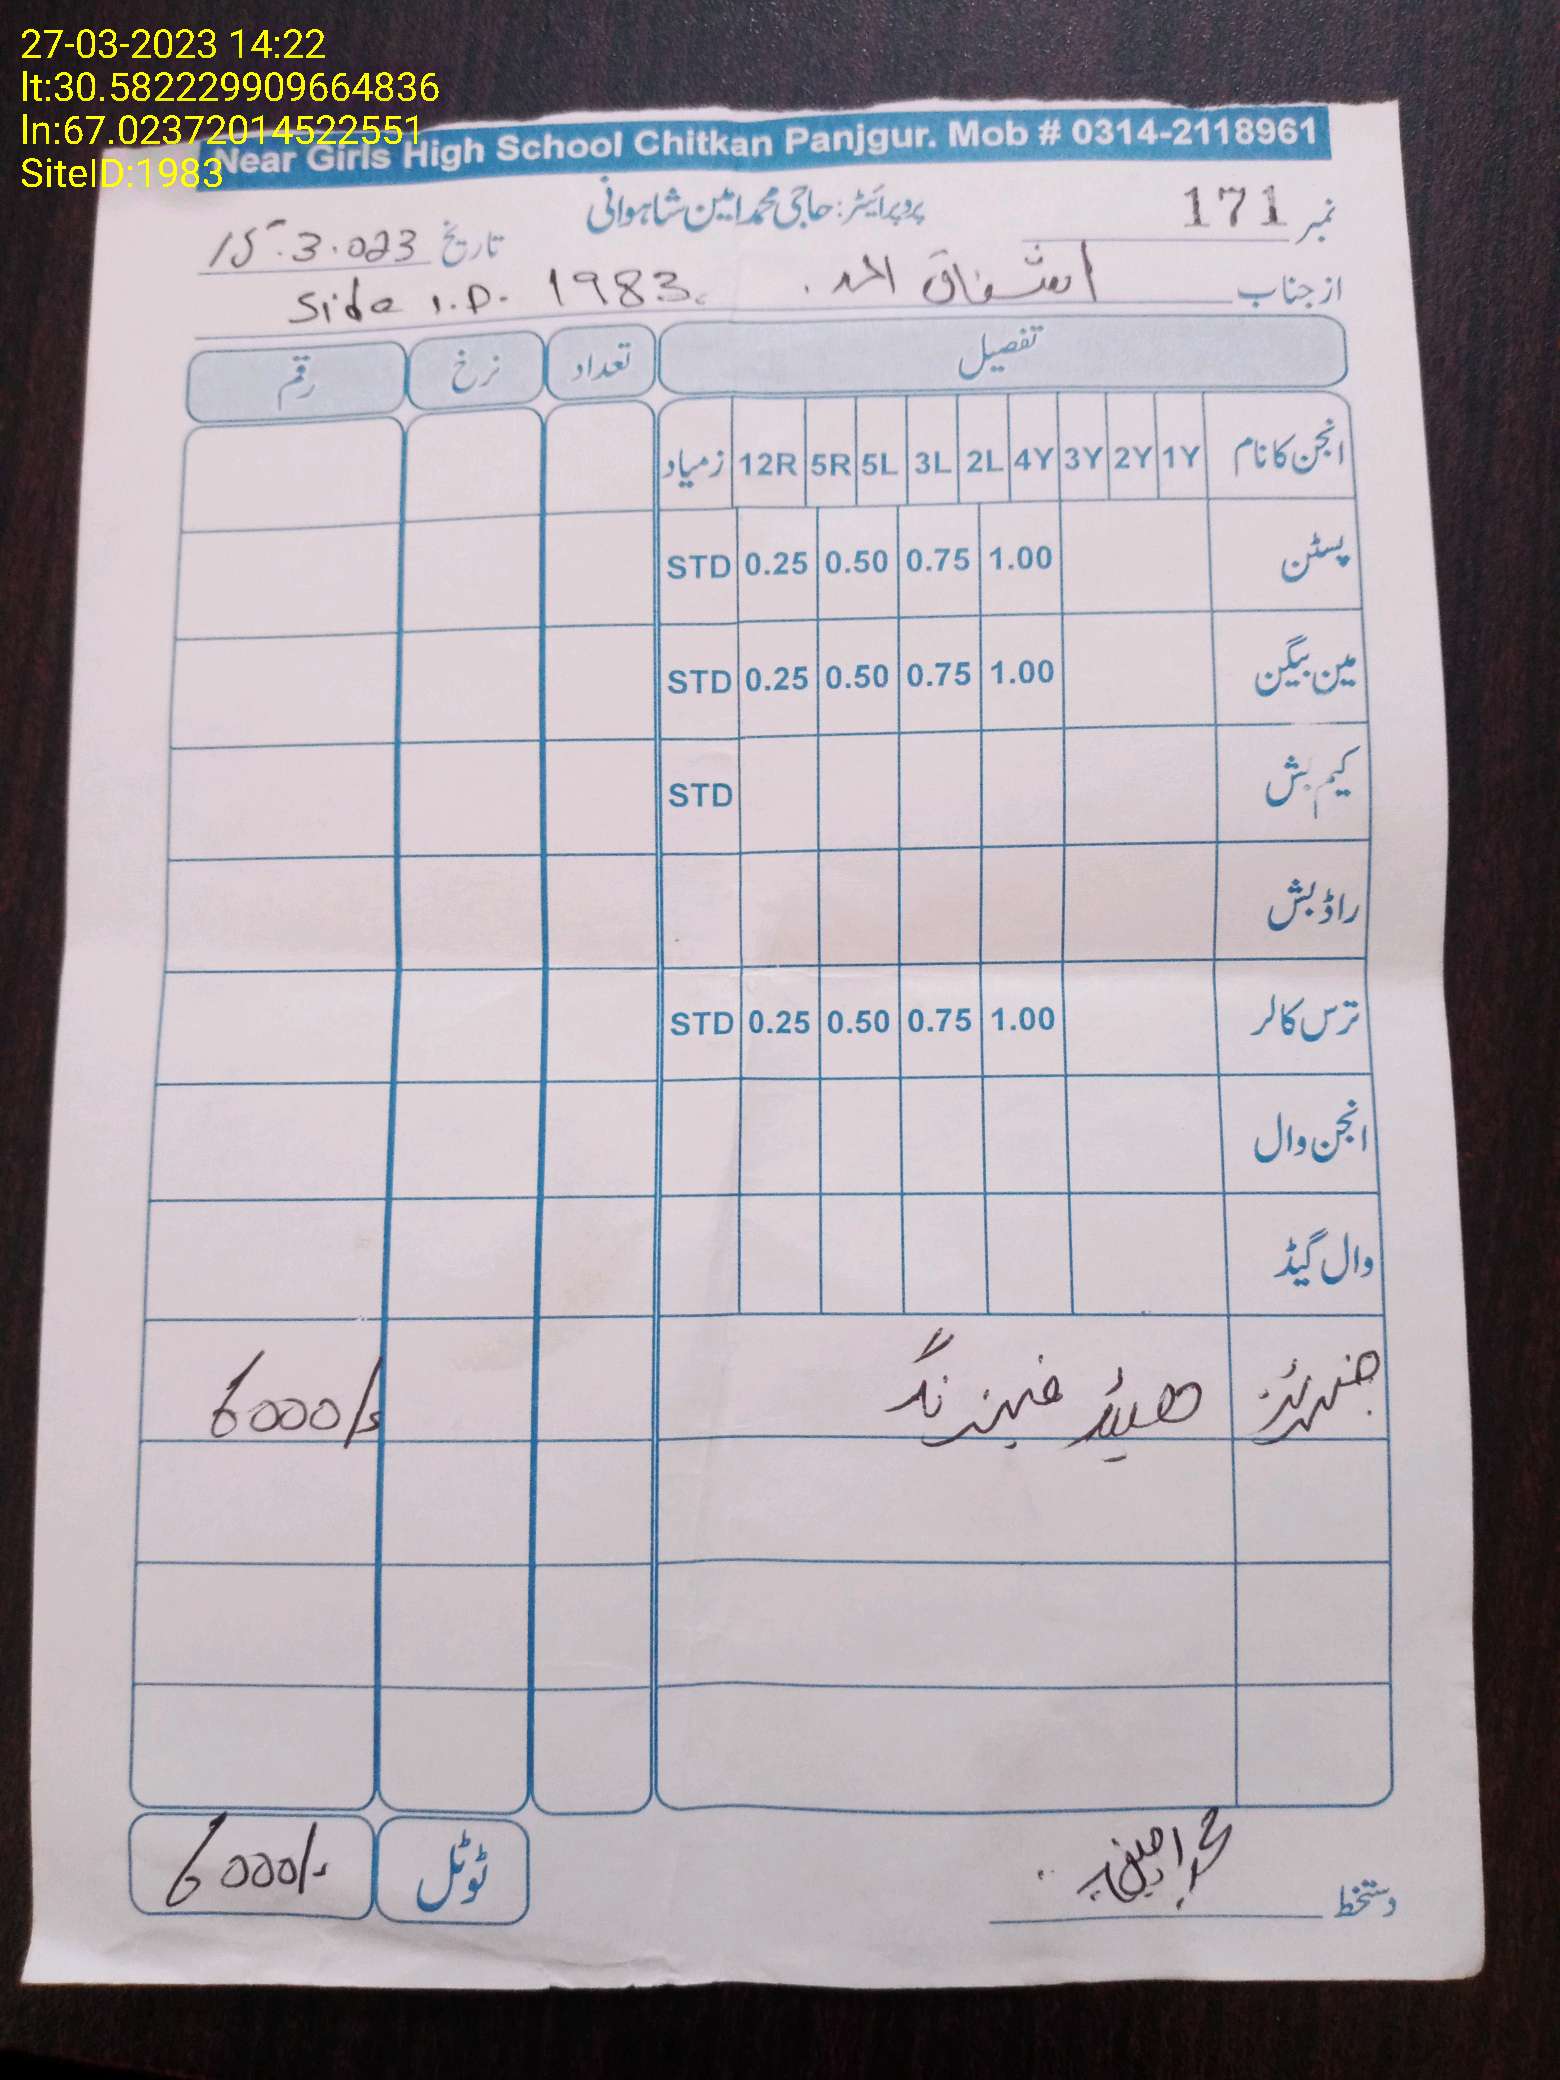 27-03-2023 14:22
lt:30.582229909664836
ln:67.02372014522551
SiteID:1983
Near Girls High School Chitkan Panjgur. Mob # 0314-2118961
پروپرائیٹر: حاجی محمد امین شاہوانی
نمبر 171
تاریخ 15.3.023
از جناب اشفاق احمد. Side I.D. 1983.
تفصیل تعداد نرخ رقم
انجن کا نام 1Y 2Y 3Y 4Y 2L 3L 5L 5R 12R زمیاد
پسٹن 1.00 0.75 0.50 0.25 STD
مین بیگن 1.00 0.75 0.50 0.25 STD
کیم بش STD
راڈ بش
ترس کالر 1.00 0.75 0.50 0.25 STD
انجن وال
وال گیڈ
6000/-
ٹوٹل 6000/-
دستخط محمد امین